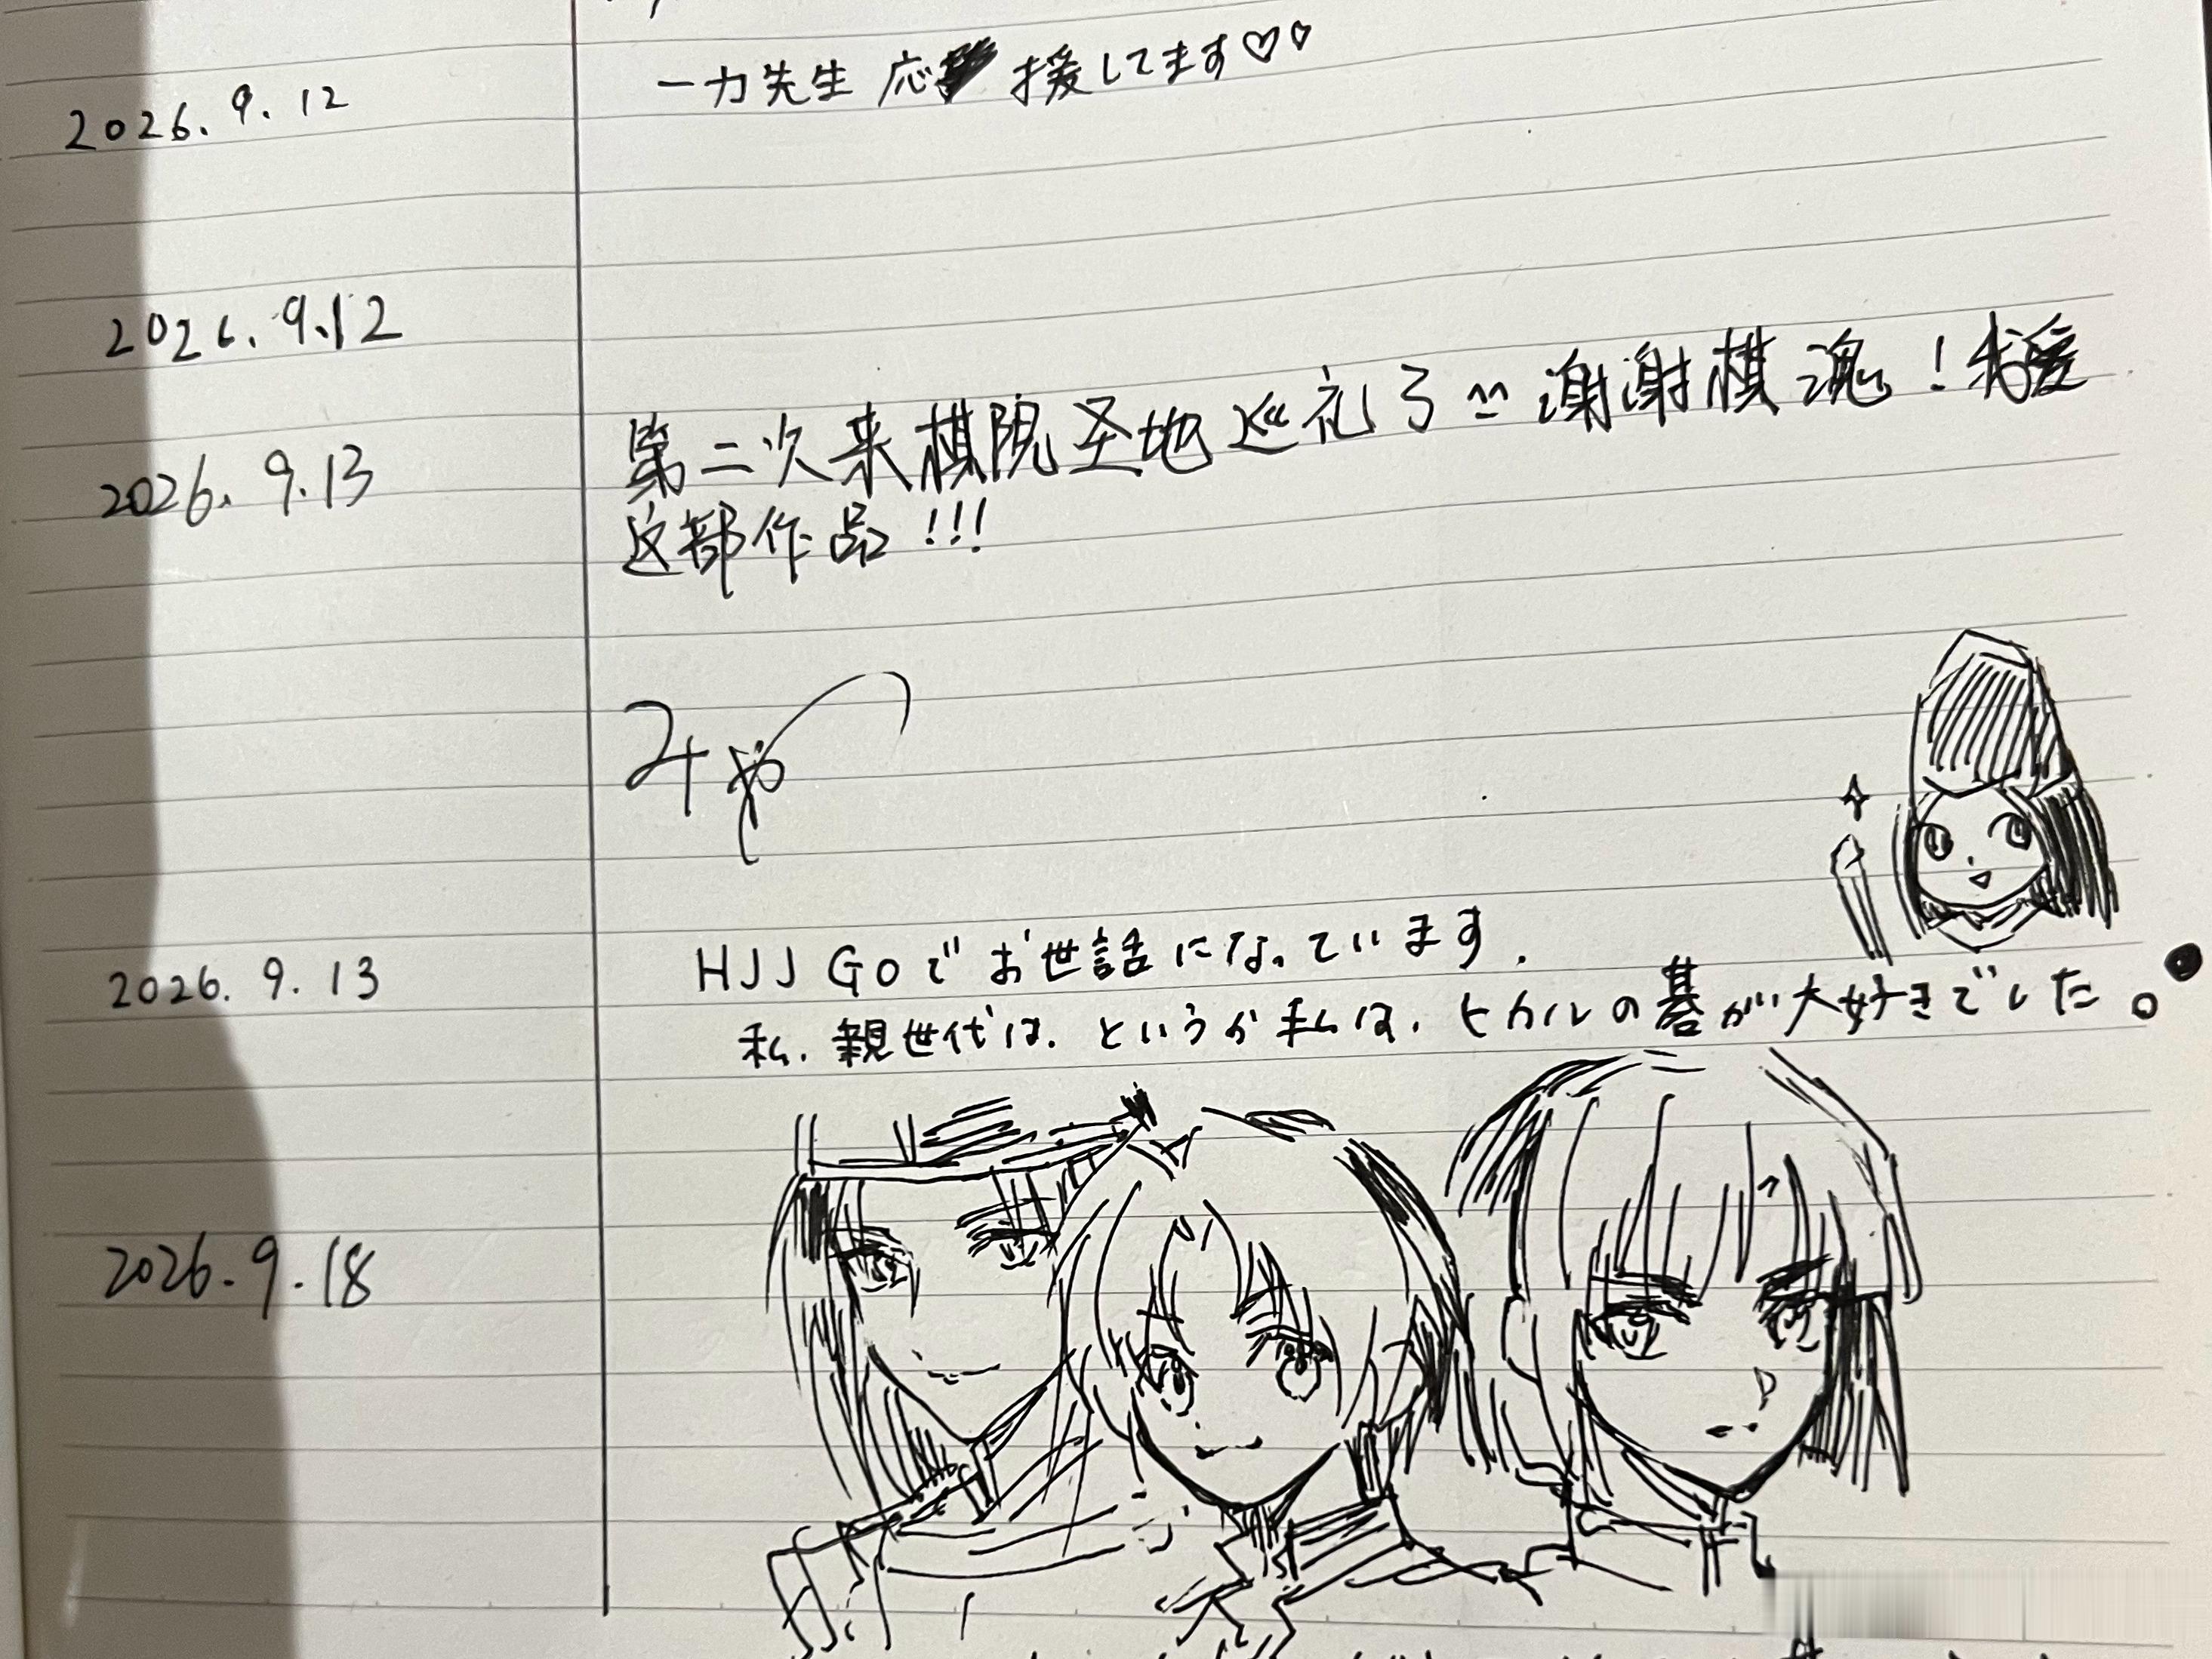 2026.9.12
一力先生 応援してます♡♡
2026.9.12
2026.9.13
第二次来棋院圣地巡礼了 谢谢棋魂！我爱
这部作品!!!
みや
2026.9.13
HJJ Goでお世話になっています.
私、親世代は、というか私は、ヒカルの碁が大好きでした。
2026.9.18